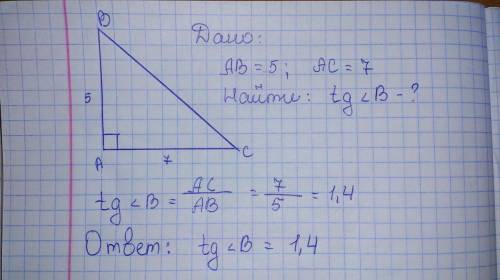 B
Дано:
AB = 5; AC = 7
Найти: tg ∠B - ?
5
A
7
C
tg ∠B = AC/AB = 7/5 = 1,4
Ответ: tg ∠B = 1,4